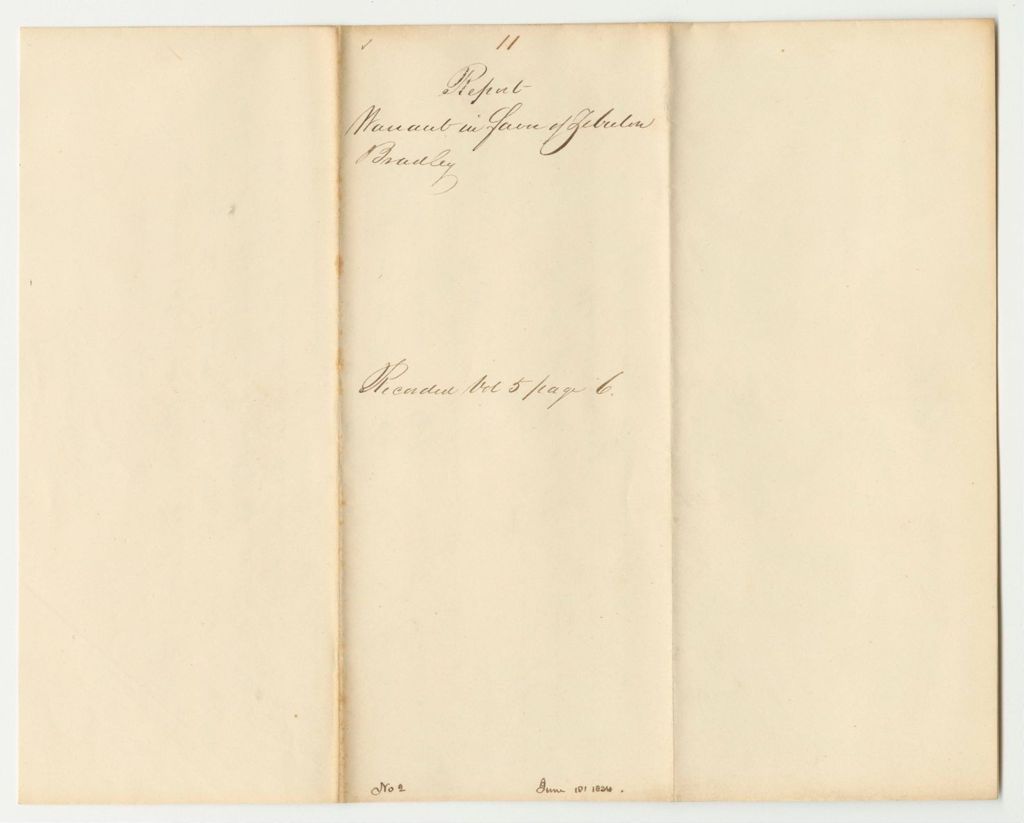 11
Report
Warrant in favor of Zebulon
Bradley
Recorded Vol 5 page 6.
No 2
June